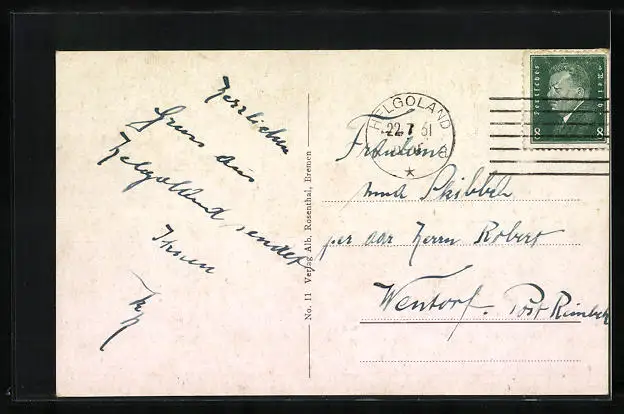 Herzlichen
Gruss aus
Helgoland sendet
Ihnen
No. 11 Verlag Alb. Rosenthal, Bremen
HELGOLAND
22.7.31
Deutsches Reich
8 8
Fräulein
Skibbeh
per adr Herrn Robert
Wentorf. Post Reinbek